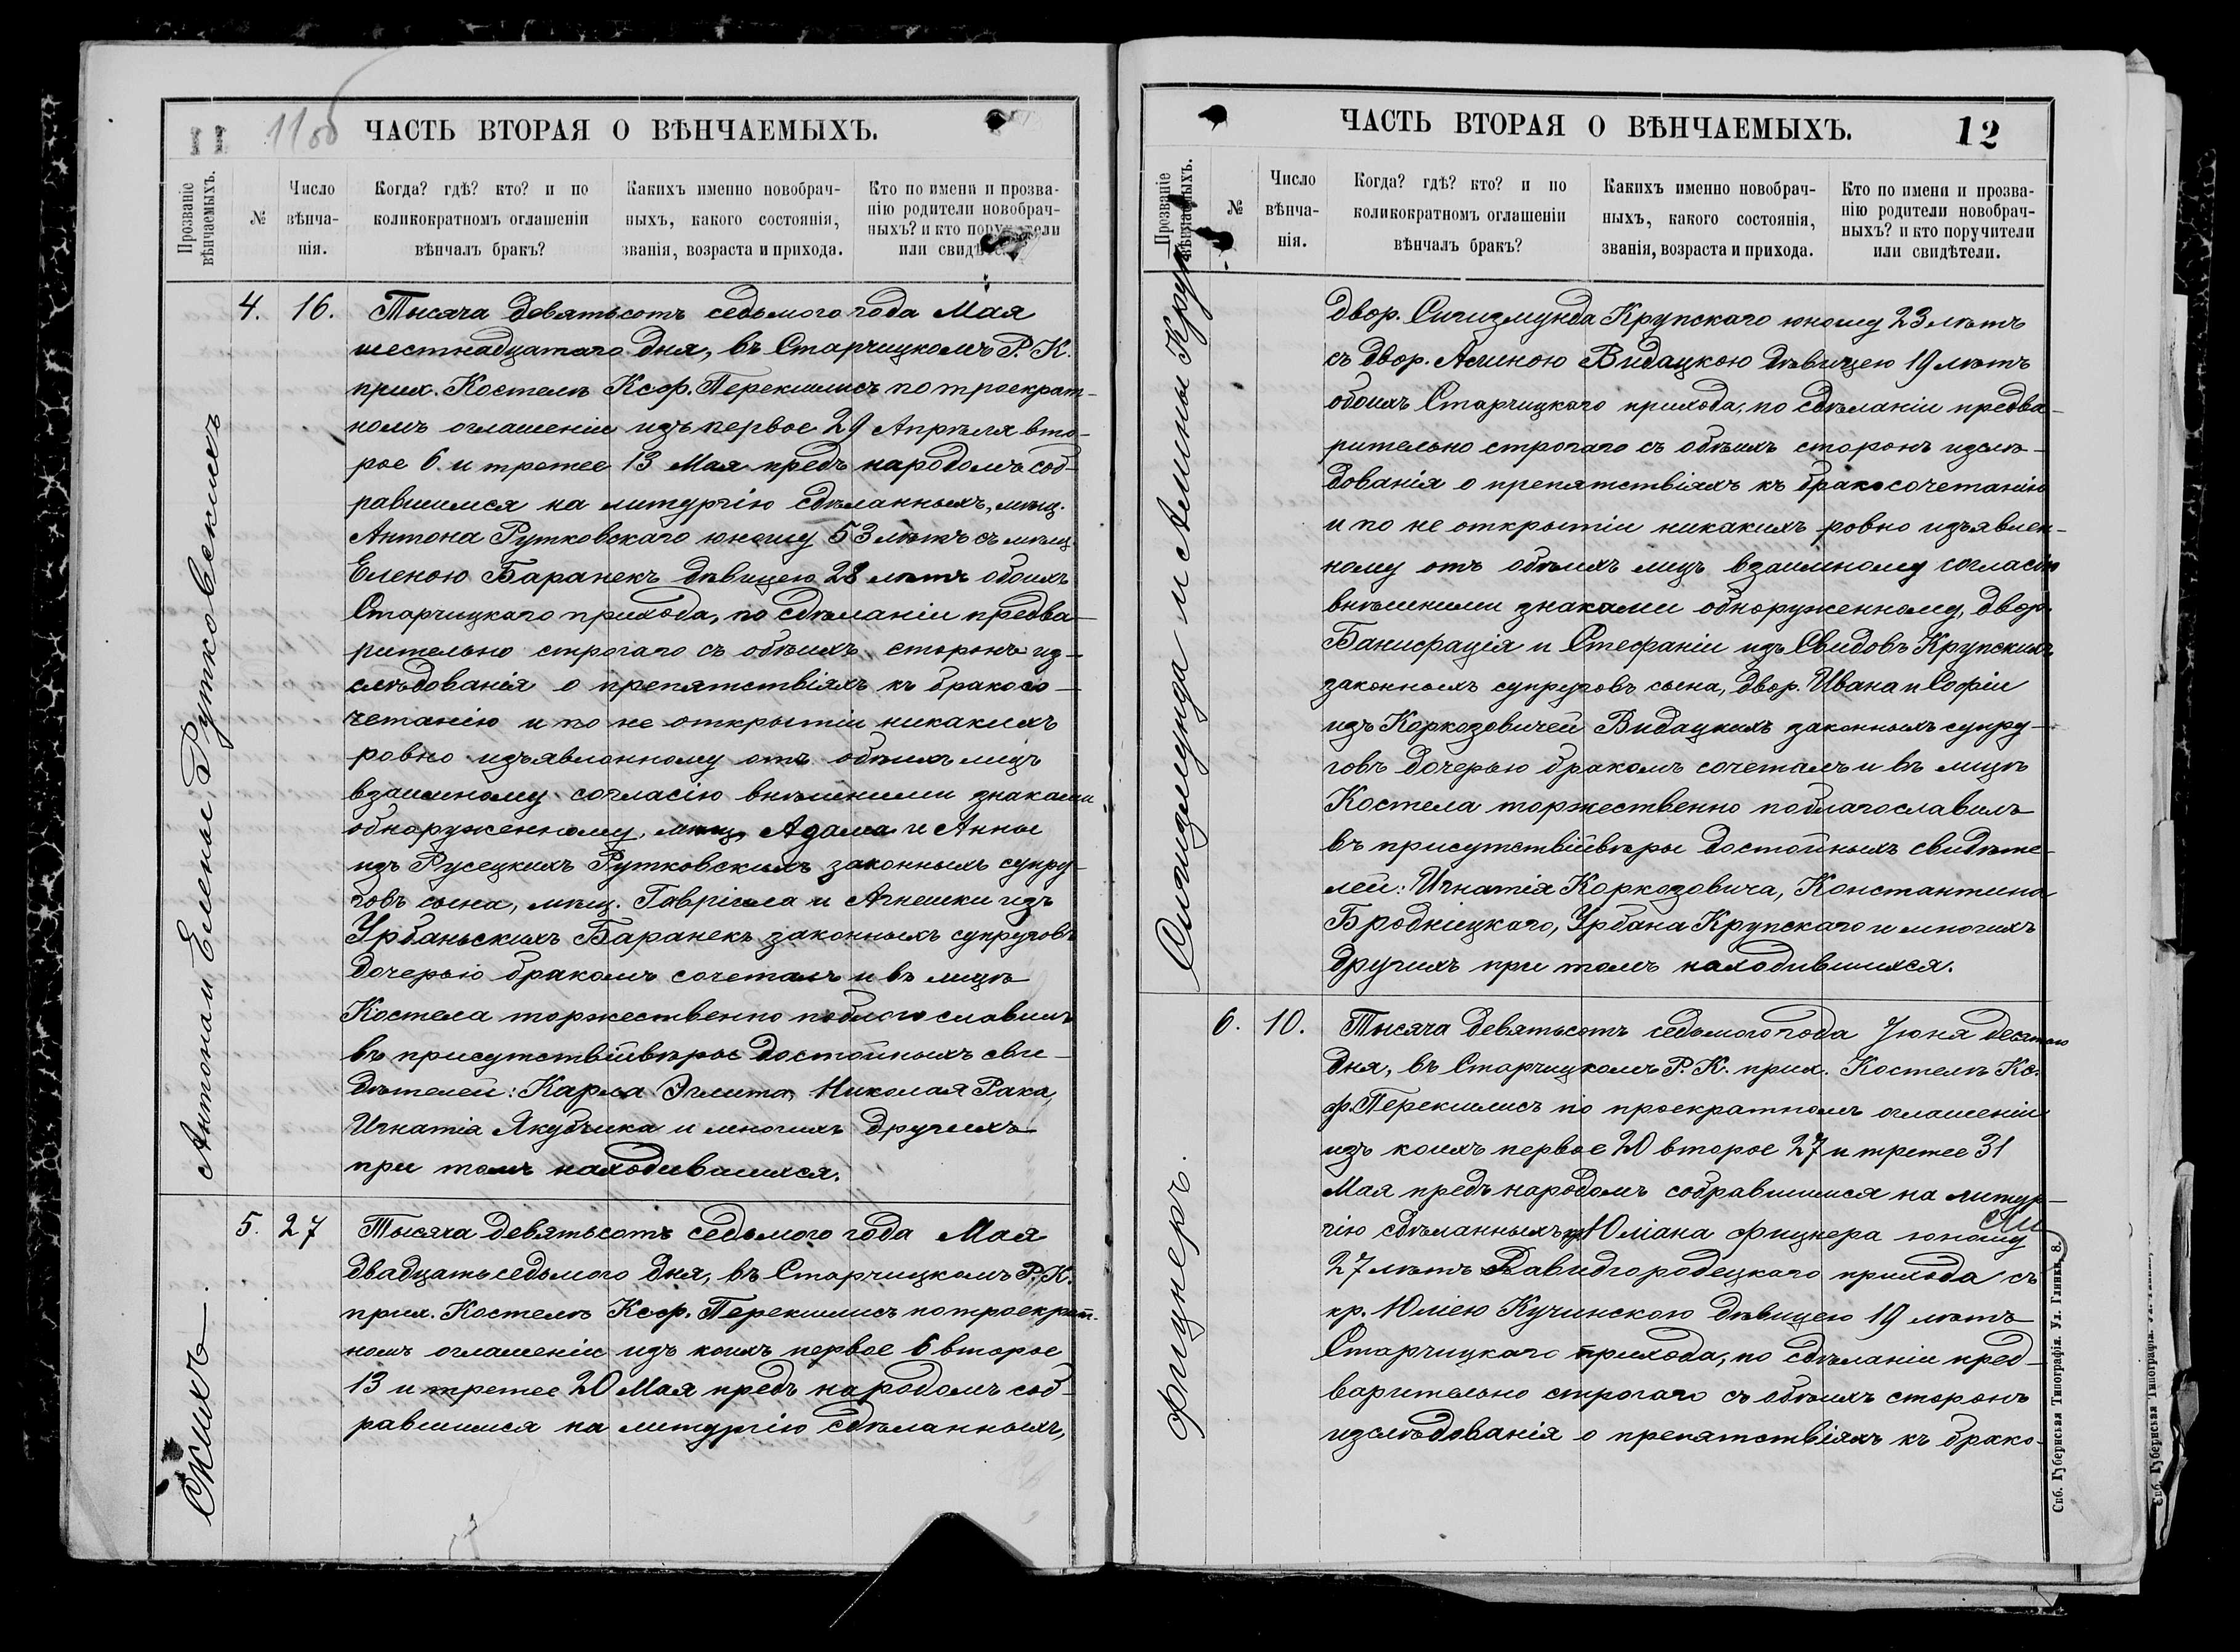 11 11об ЧАСТЬ ВТОРАЯ О ВѢНЧАЕМЫХЪ.
Прозваніе вѣнчаемыхъ.
№
Число вѣнча-
нія.
Когда? гдѣ? кто? и по
коликократномъ оглашеніи
вѣнчалъ бракъ?
Какихъ именно новобрач-
ныхъ, какого состоянія,
званія, возраста и прихода.
Кто по имени и прозва-
нію родители новобрач-
ныхъ? и кто поручители
или свидѣтели.
Антона и Елены Рутковскихъ
4. 16. Тысяча девятьсотъ седьмого года Мая
шестнадцатаго дня, въ Старчицкомъ Р. К.
прих. Костелѣ Ксф. Перекшлисъ по троекрат-
номъ оглашеніи изъ первое 29 Апрѣля вто-
рое 6. и третее 13 Мая предъ народомъ соб-
равшимся на литургію сдѣланныхъ, мѣщ.
Антона Рутковскаго юношу 53 лѣтъ съ мѣщ.
Еленою Баранекъ дѣвицею 28 лѣтъ обоихъ
Старчицкаго прихода, по сдѣланіи предва-
рительно строгаго съ обѣихъ сторонъ из-
слѣдованія о препятствіяхъ къ бракосо-
четанію и по не открытіи никакихъ
ровно изъявлонному отъ обѣихъ лицъ
взаимному согласію внѣшними знаками
обнаруженному, мѣщ. Адама и Анны
изъ Русецкихъ Рутковскихъ законныхъ супру-
говъ сына, мѣщ. Гавріила и Агнешки изъ
Урбаньскихъ Баранекъ законныхъ супруговъ
дочерью бракомъ сочеталъ и въ лицѣ
Костела торжественно поблагославилъ
въ присутствіи вѣры достойныхъ сви-
дѣтелей: Карла Эглита, Николая Рака,
Игнатія Якубчика и многихъ другихъ
при томъ находившихся.
скихъ
5. 27 Тысяча девятьсотъ седьмого года Мая
двадцать седьмого дня, въ Старчицкомъ Р. К.
прих. Костелѣ Ксф. Перекшлисъ по троекрат-
номъ оглашеніи изъ коихъ первое 6 второе
13 и третее 20 Мая предъ народомъ соб-
равшимся на литургію сдѣланныхъ,
ЧАСТЬ ВТОРАЯ О ВѢНЧАЕМЫХЪ. 12
Прозваніе вѣнчаемыхъ.
№
Число
вѣнча-
нія.
Когда? гдѣ? кто? и по
коликократномъ оглашеніи
вѣнчалъ бракъ?
Какихъ именно новобрач-
ныхъ, какого состоянія,
званія, возраста и прихода.
Кто по имени и прозва-
нію родители новобрач-
ныхъ? и кто поручители
или свидѣтели.
Сигизмунда и Амины Круп
двор. Сигизмунда Крупскаго юношу 23 лѣтъ
съ двор. Аминою Видацкою дѣвицею 19 лѣтъ
обоихъ Старчицкаго прихода, по сдѣланіи предва-
рительно строгаго съ обѣихъ сторонъ изслѣ-
дованія о препятствіяхъ къ бракосочетанію
и по не открытіи никакихъ ровно изъявлен-
ному отъ обѣихъ лицъ взаимному согласію
внѣшними знаками обнаруженному, двор.
Банифація и Стефаніи изъ Свидовъ Крупскихъ
законныхъ супруговъ сына, двор. Ивана и Софіи
изъ Коркозовичей Видацкихъ законныхъ супру-
говъ дочерью бракомъ сочеталъ и въ лицѣ
Костела торжественно поблагославилъ
въ присутствіи вѣры достойныхъ свидѣте-
лей: Игнатія Коркозовича, Константина
Бродницкаго, Урбана Крупскаго и многихъ
другихъ при томъ находившихся.
Фицнеръ.
6. 10. Тысяча девятьсотъ седьмого года Іюня десятого
дня, въ Старчицкомъ Р. К. прих. Костелѣ Кс.
ф. Перекшлисъ по троекратномъ оглашеніи
изъ коихъ первое 20 второе 27 и третее 31
Мая предъ народомъ собравшимся на литур-
гію сдѣланныхъ, Юліана Фицнера юношу
27 лѣтъ Давидгородецкаго прихода съ
кр. Юліею Кучинскою дѣвицею 19 лѣтъ
Старчицкаго прихода, по сдѣланіи пред-
варительно строгаго съ обѣихъ сторонъ
изслѣдованія о препятствіяхъ къ брако-
Спб. Губернская Типографія. Ул. Глинки, 8.